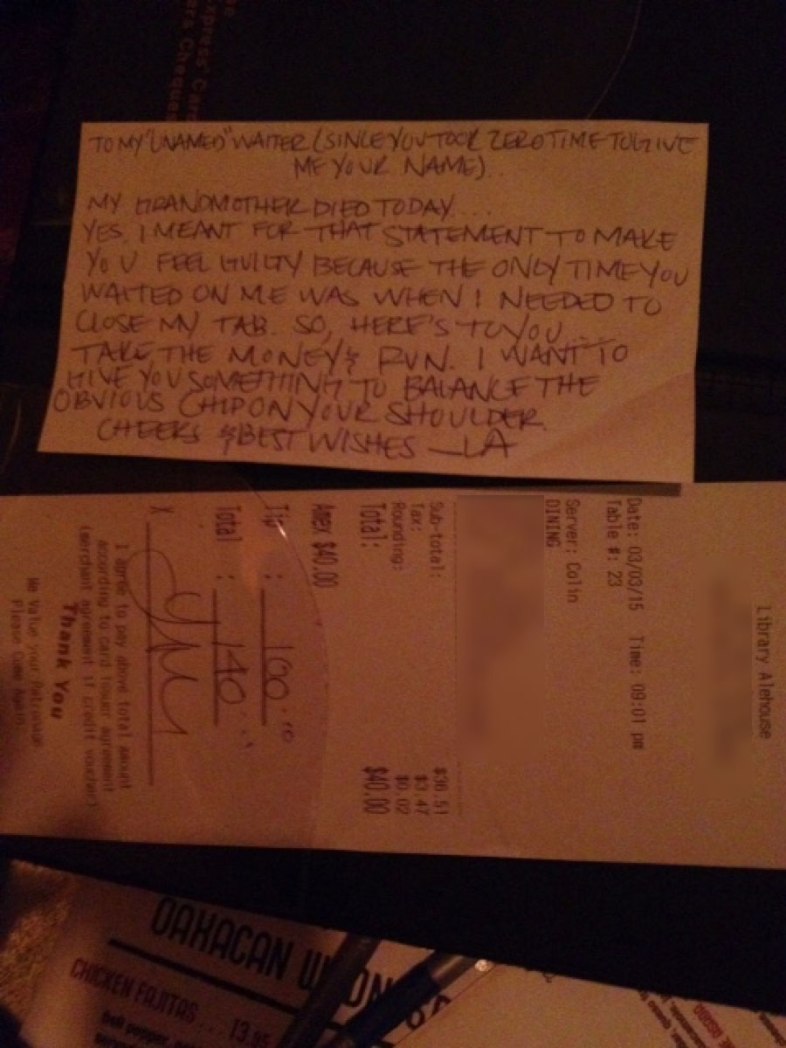 TO MY "UNAMED" WAITER (SINCE YOU TOOK ZERO TIME TO GIVE
ME YOUR NAME)..
MY GRANDMOTHER DIED TODAY....
YES, I MEANT FOR THAT STATEMENT TO MAKE
YOU FEEL GUILTY BECAUSE THE ONLY TIME YOU
WAITED ON ME WAS WHEN I NEEDED TO
CLOSE MY TAB. SO, HERE'S TO YOU...
TAKE THE MONEY & RUN. I WANT TO
GIVE YOU SOMETHING TO BALANCE THE
OBVIOUS CHIP ON YOUR SHOULDER.
CHEERS & BEST WISHES —LA
Library Alehouse
Date: 03/03/15 Time: 09:01 pm
Table #: 23
Server: Colin
DINING
Sub-total: $36.51
Tax: $3.47
Rounding: $0.02
Total: $40.00
Amex $40.00
Tip : 100.
Total : 140.
X
I agree to pay above total amount
according to card issuer agreement
(merchant agreement if credit voucher)
Thank You
We Value your Patronage
Please Come Again
OAXACAN
CHICKEN FAJITAS... 13.95
bell pepper,